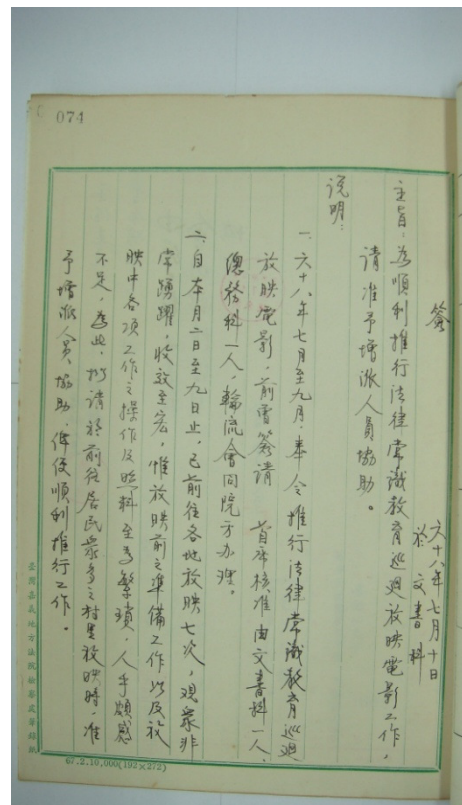 074
簽
六十八年七月十日
於文書科
主旨：為順利推行法律常識教育巡迴放映電影工作，
請准予增派人員協助。
說明：
一、六十八年七月至九月，奉令推行法律常識教育巡迴
放映電影，前曾簽請　首席核准由文書科一人、
總務科一人，輪流會同院方辦理。
二、自本月二日至九日止，已前往各地放映七次，觀眾非
常踴躍，收效至宏，惟放映前之準備工作以及放
映中各項工作之操作及照料至為繁瑣，人手頗感
不足，為此，擬請於前往居民眾多之村里放映時，准
予增派人員協助，俾便順利推行工作。
臺灣嘉義地方法院檢察處簽辦紙
67.2.10,000(192×272)